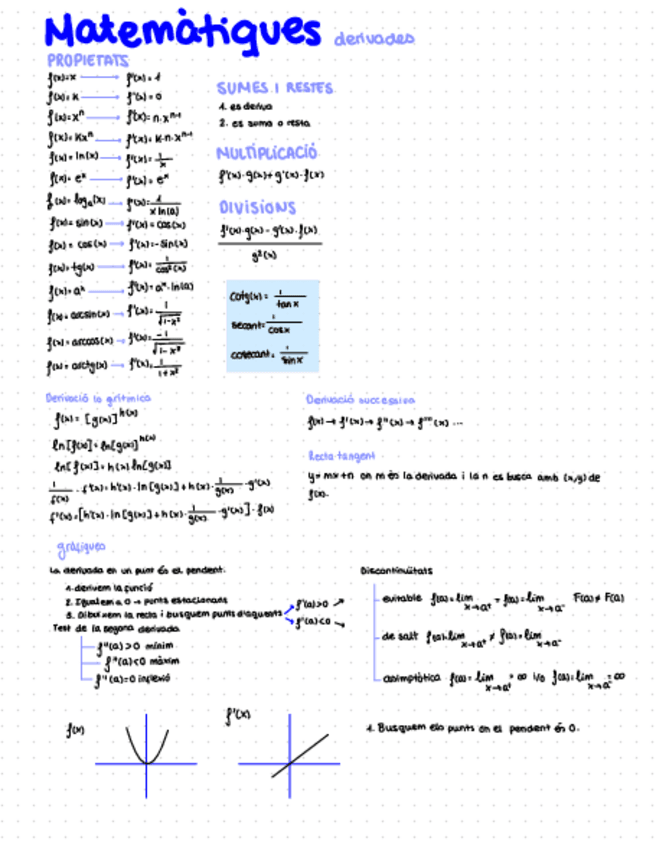 Matemàtiques derivades
PROPIETATS
f(x)=x → f'(x)=1
f(x)=K → f'(x)=0
f(x)=xⁿ → f'(x)=n·xⁿ⁻¹
f(x)=Kxⁿ → f'(x)=K·n·xⁿ⁻¹
f(x)=ln(x) → f'(x)=1/x
f(x)=eˣ → f'(x)=eˣ
f(x)=logₐ(x) → f'(x)=1/(x ln(a))
f(x)=sin(x) → f'(x)=cos(x)
f(x)=cos(x) → f'(x)=-sin(x)
f(x)=tg(x) → f'(x)=1/cos²(x)
f(x)=aˣ → f'(x)=aˣ·ln(a)
f(x)=arcsin(x) → f'(x)=1/√(1-x²)
f(x)=arccos(x) → f'(x)=-1/√(1-x²)
f(x)=arctg(x) → f'(x)=1/(1+x²)
SUMES I RESTES
1. es deriva
2. es suma o resta
MULTIPLICACIÓ
f'(x)·g(x)+g'(x)·f(x)
DIVISIONS
f'(x)·g(x)-g'(x)·f(x)
g²(x)
cotg(x)= 1/tan x
secant= 1/cos x
cosecant= 1/sin x
Derivació logrítmica
f(x)=[g(x)]^h(x)
ln[f(x)]=ln[g(x)]^h(x)
ln[f(x)]=h(x) ln[g(x)]
1/f(x) · f'(x)=h'(x)·ln[g(x)]+h(x)·1/g(x)·g'(x)
f'(x)=[h'(x)·ln[g(x)]+h(x)·1/g(x)·g'(x)]·f(x)
Derivació successiva
f(x)→f'(x)→f''(x)→f'''(x)...
Recta tangent
y=mx+n on m és la derivada i la n es busca amb (x,y) de
f(x).
gràfiques
La derivada en un punt és el pendent.
1. derivem la funció
2. Igualem a 0 → punts estacionaris
3. Dibuixem la recta i busquem punts d'aquests
f'(a)>0
f'(a)<0
Test de la segona derivada
f''(a)>0 mínim
f''(a)<0 màxim
f''(a)=0 inflexió
Discontinuïtats
evitable f(a)=lim x→a⁺ = f(a)=lim x→a⁻ F(a)≠F(a)
de salt f(a)=lim x→a⁺ ≠ f(a)=lim x→a⁻
asimptòtica f(a)=lim x→a⁺ = ∞ i/o f(a)=lim x→a⁻ = ∞
f(x)
f'(x)
1. Busquem els punts on el pendent és 0.